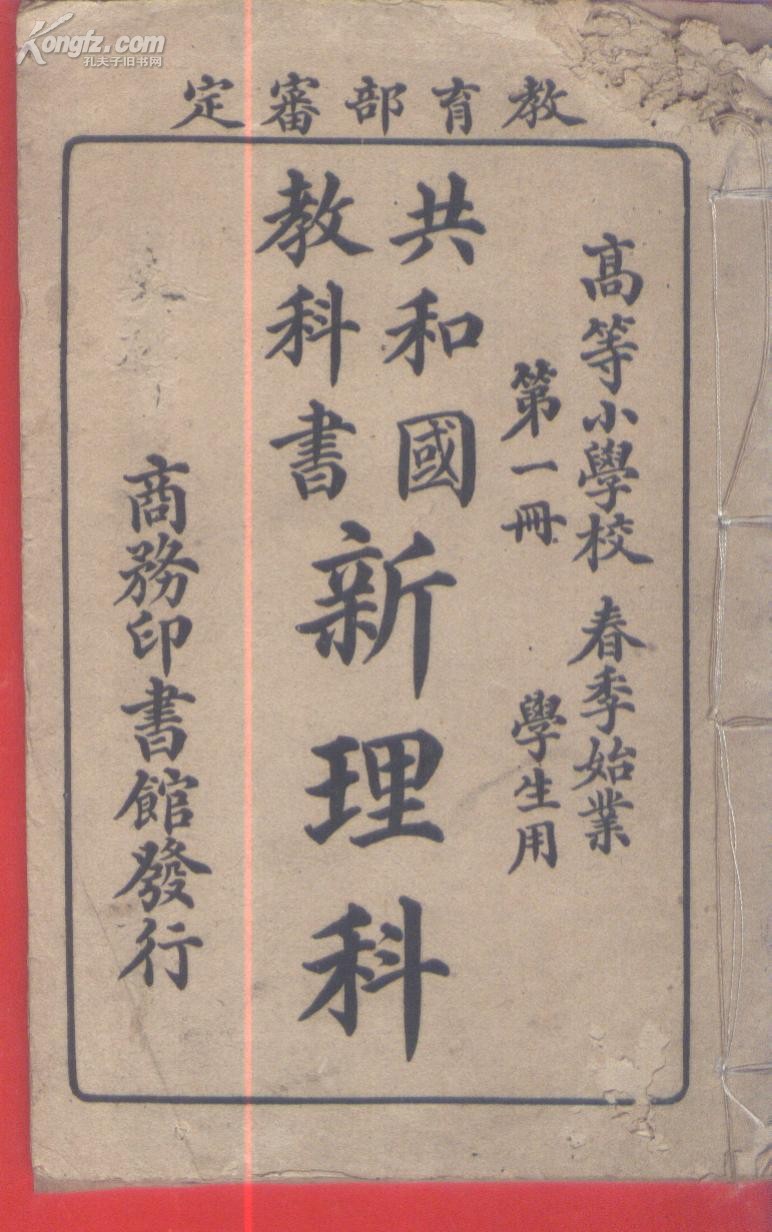 Kongfz.com
孔夫子旧书网
教育部審定
高等小學校 春季始業
第一冊 學生用
共和國
教科書
新理科
商務印書館發行